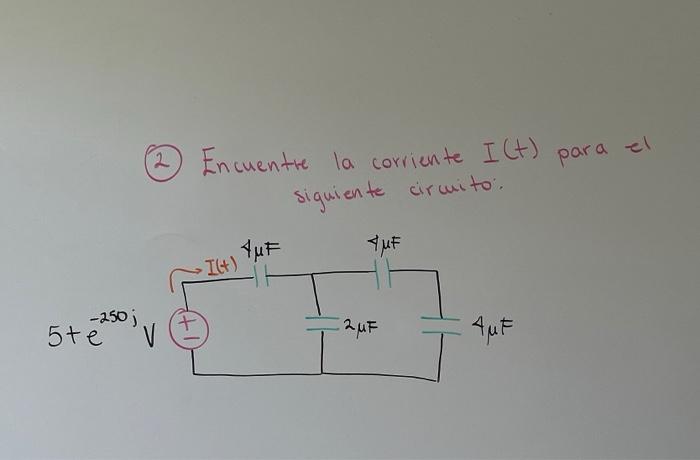 ② Encuentre la corriente I(t) para el
siguiente circuito:
I(t)
4μF
4μF
5te^-250j V
+
-
2μF
4μF